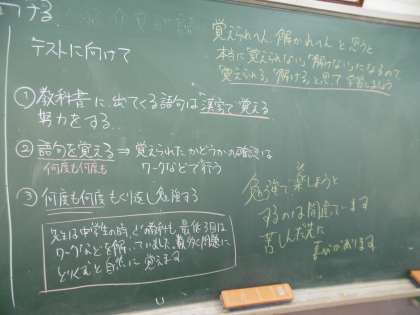 ける
テストに向けて
①教科書に、出てくる語句は漢字で覚える
努力をする
②語句を覚える⇒覚えられたかどうかの確認は
何度も何度も
ワークなどで行う
③何度も何度もくり返し勉強する
先生は中学生の時、どの教科も最低3回は
ワークなどを解いていました。数多く問題に
とりくむと自然に覚えます
覚えられへん、解かれへんと思うと
本当に"覚えられない""解けない"になるので
"覚えられる""解ける"と思って学習しましょう
勉強で楽しようと
するのは間違っています
苦しんだ先に
があります